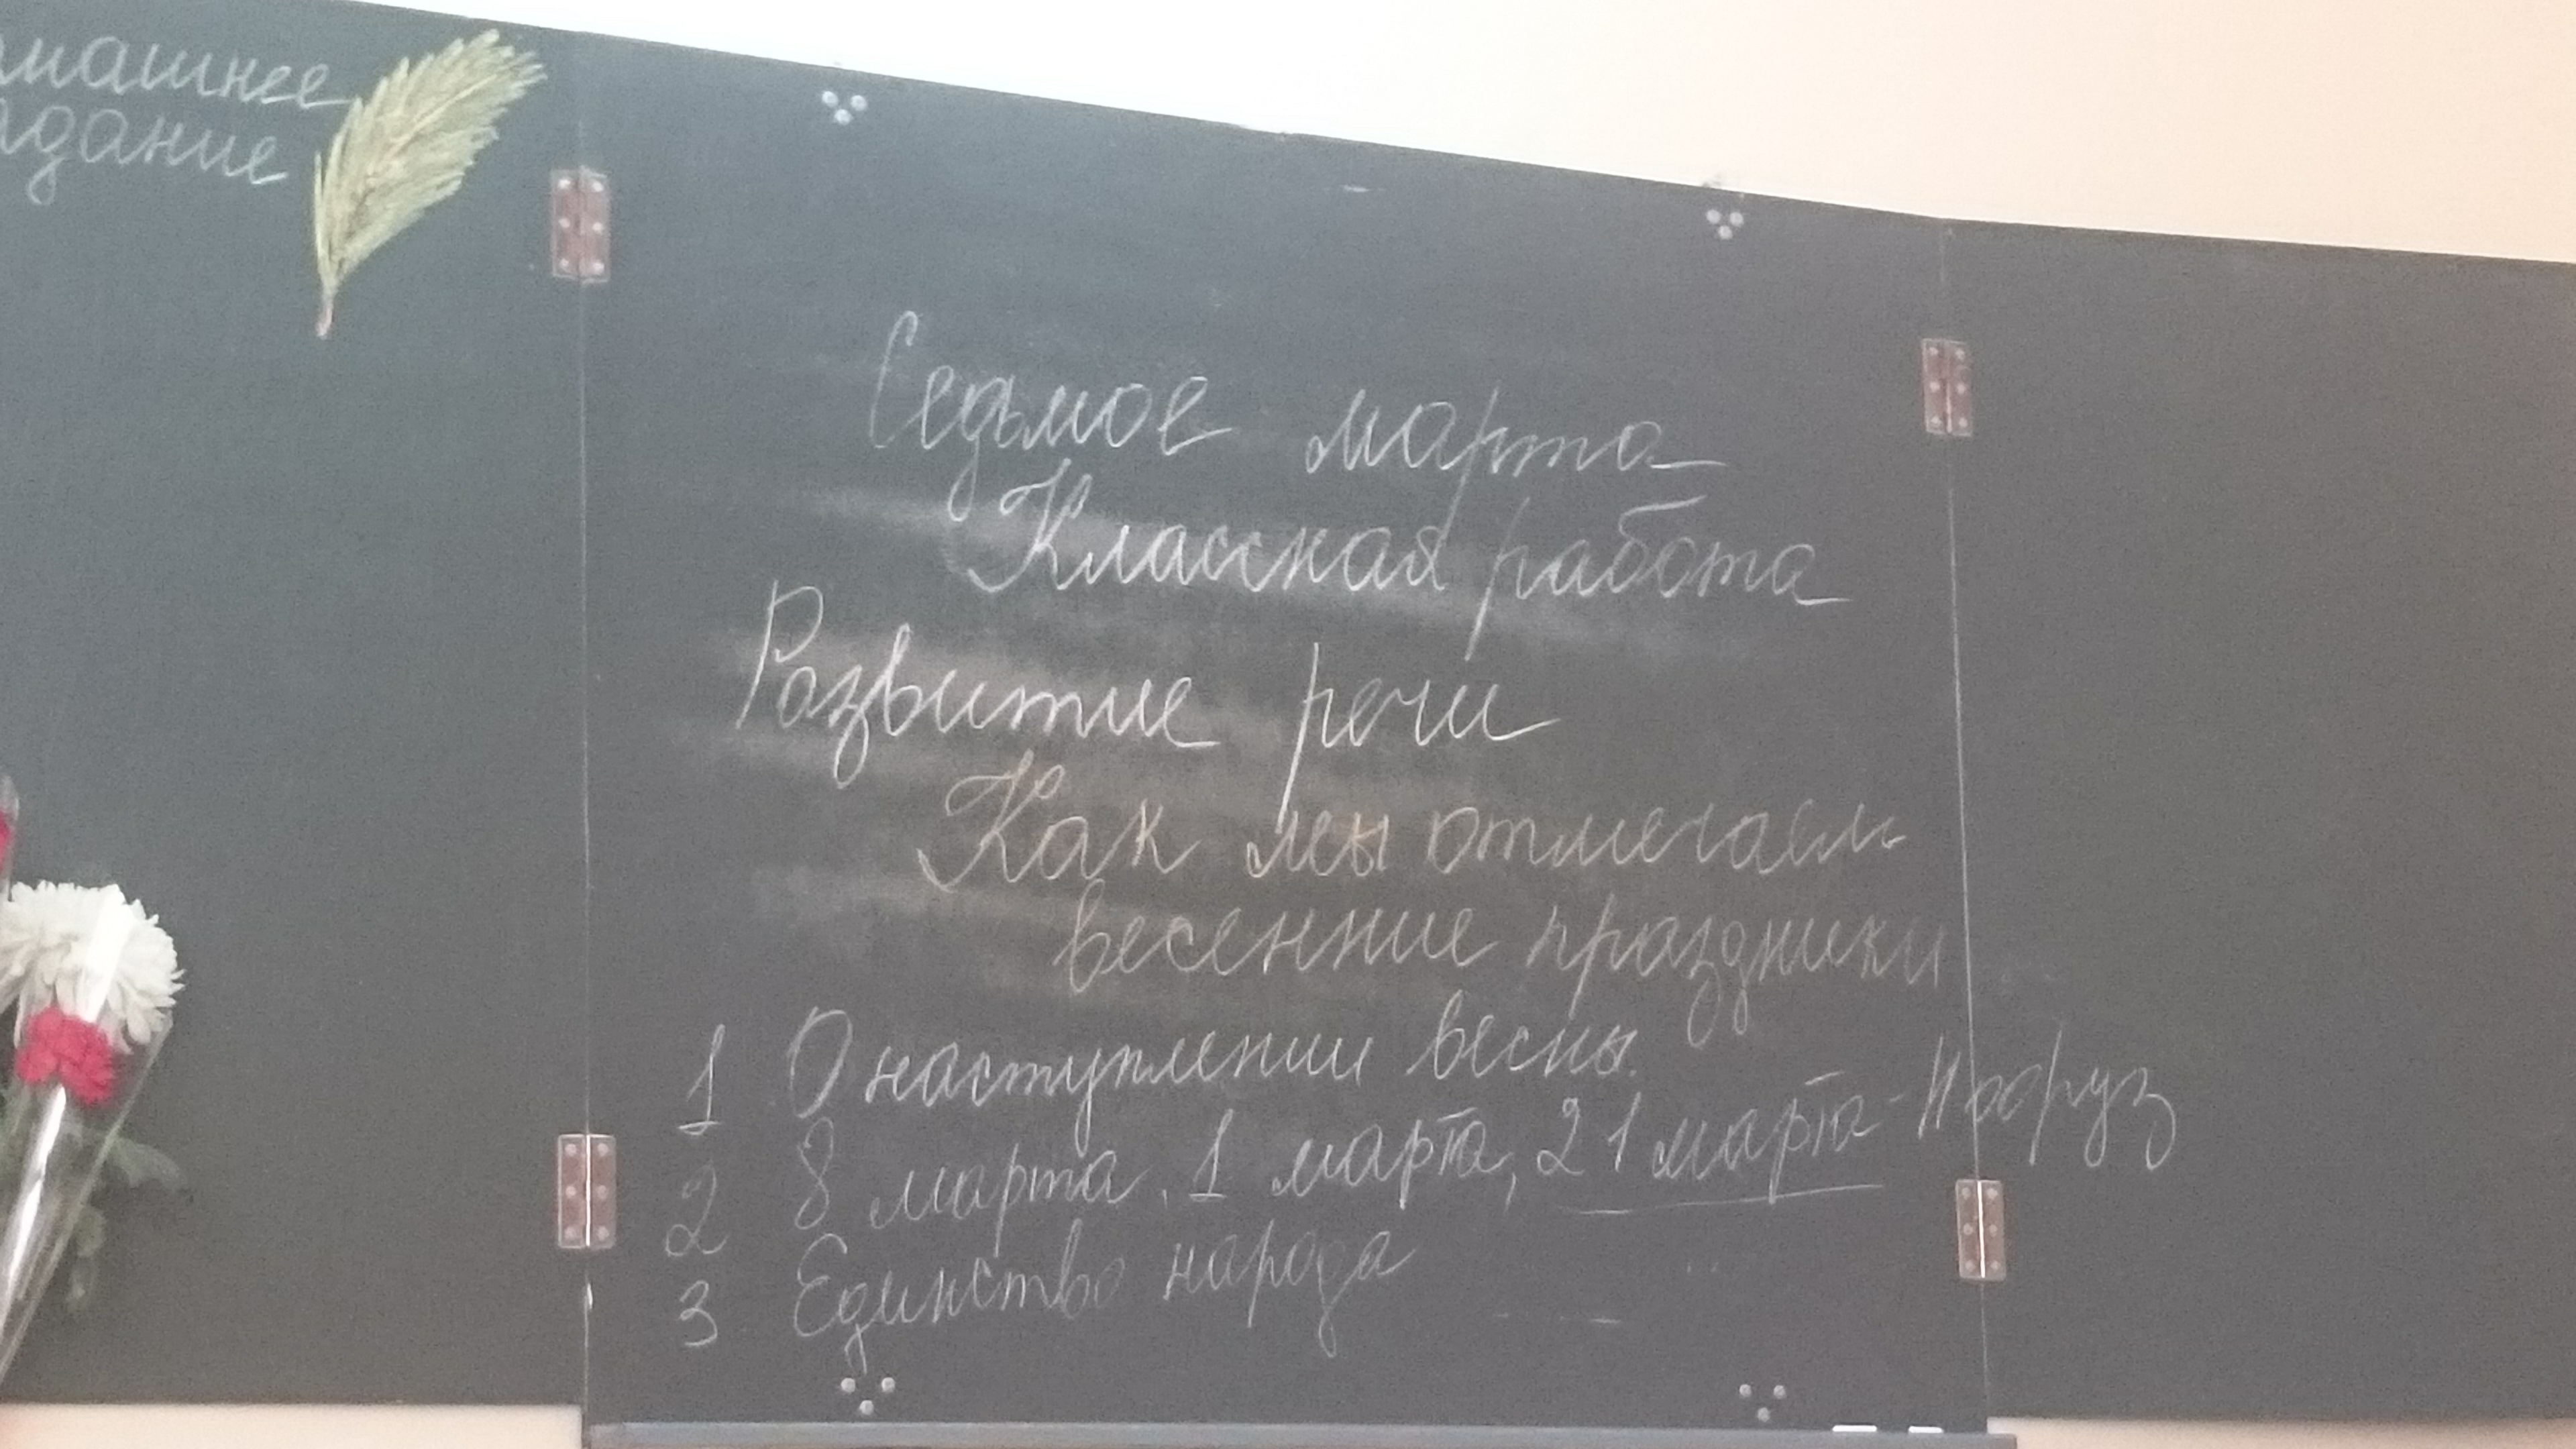 омашнее
адание
Седьмое марта
Классная работа
Развитие речи
Как мы отмечаем
весенние праздники
1 О наступлении весны.
2 8 марта, 1 марта, 21 марта - Нооруз
3 Единство народа